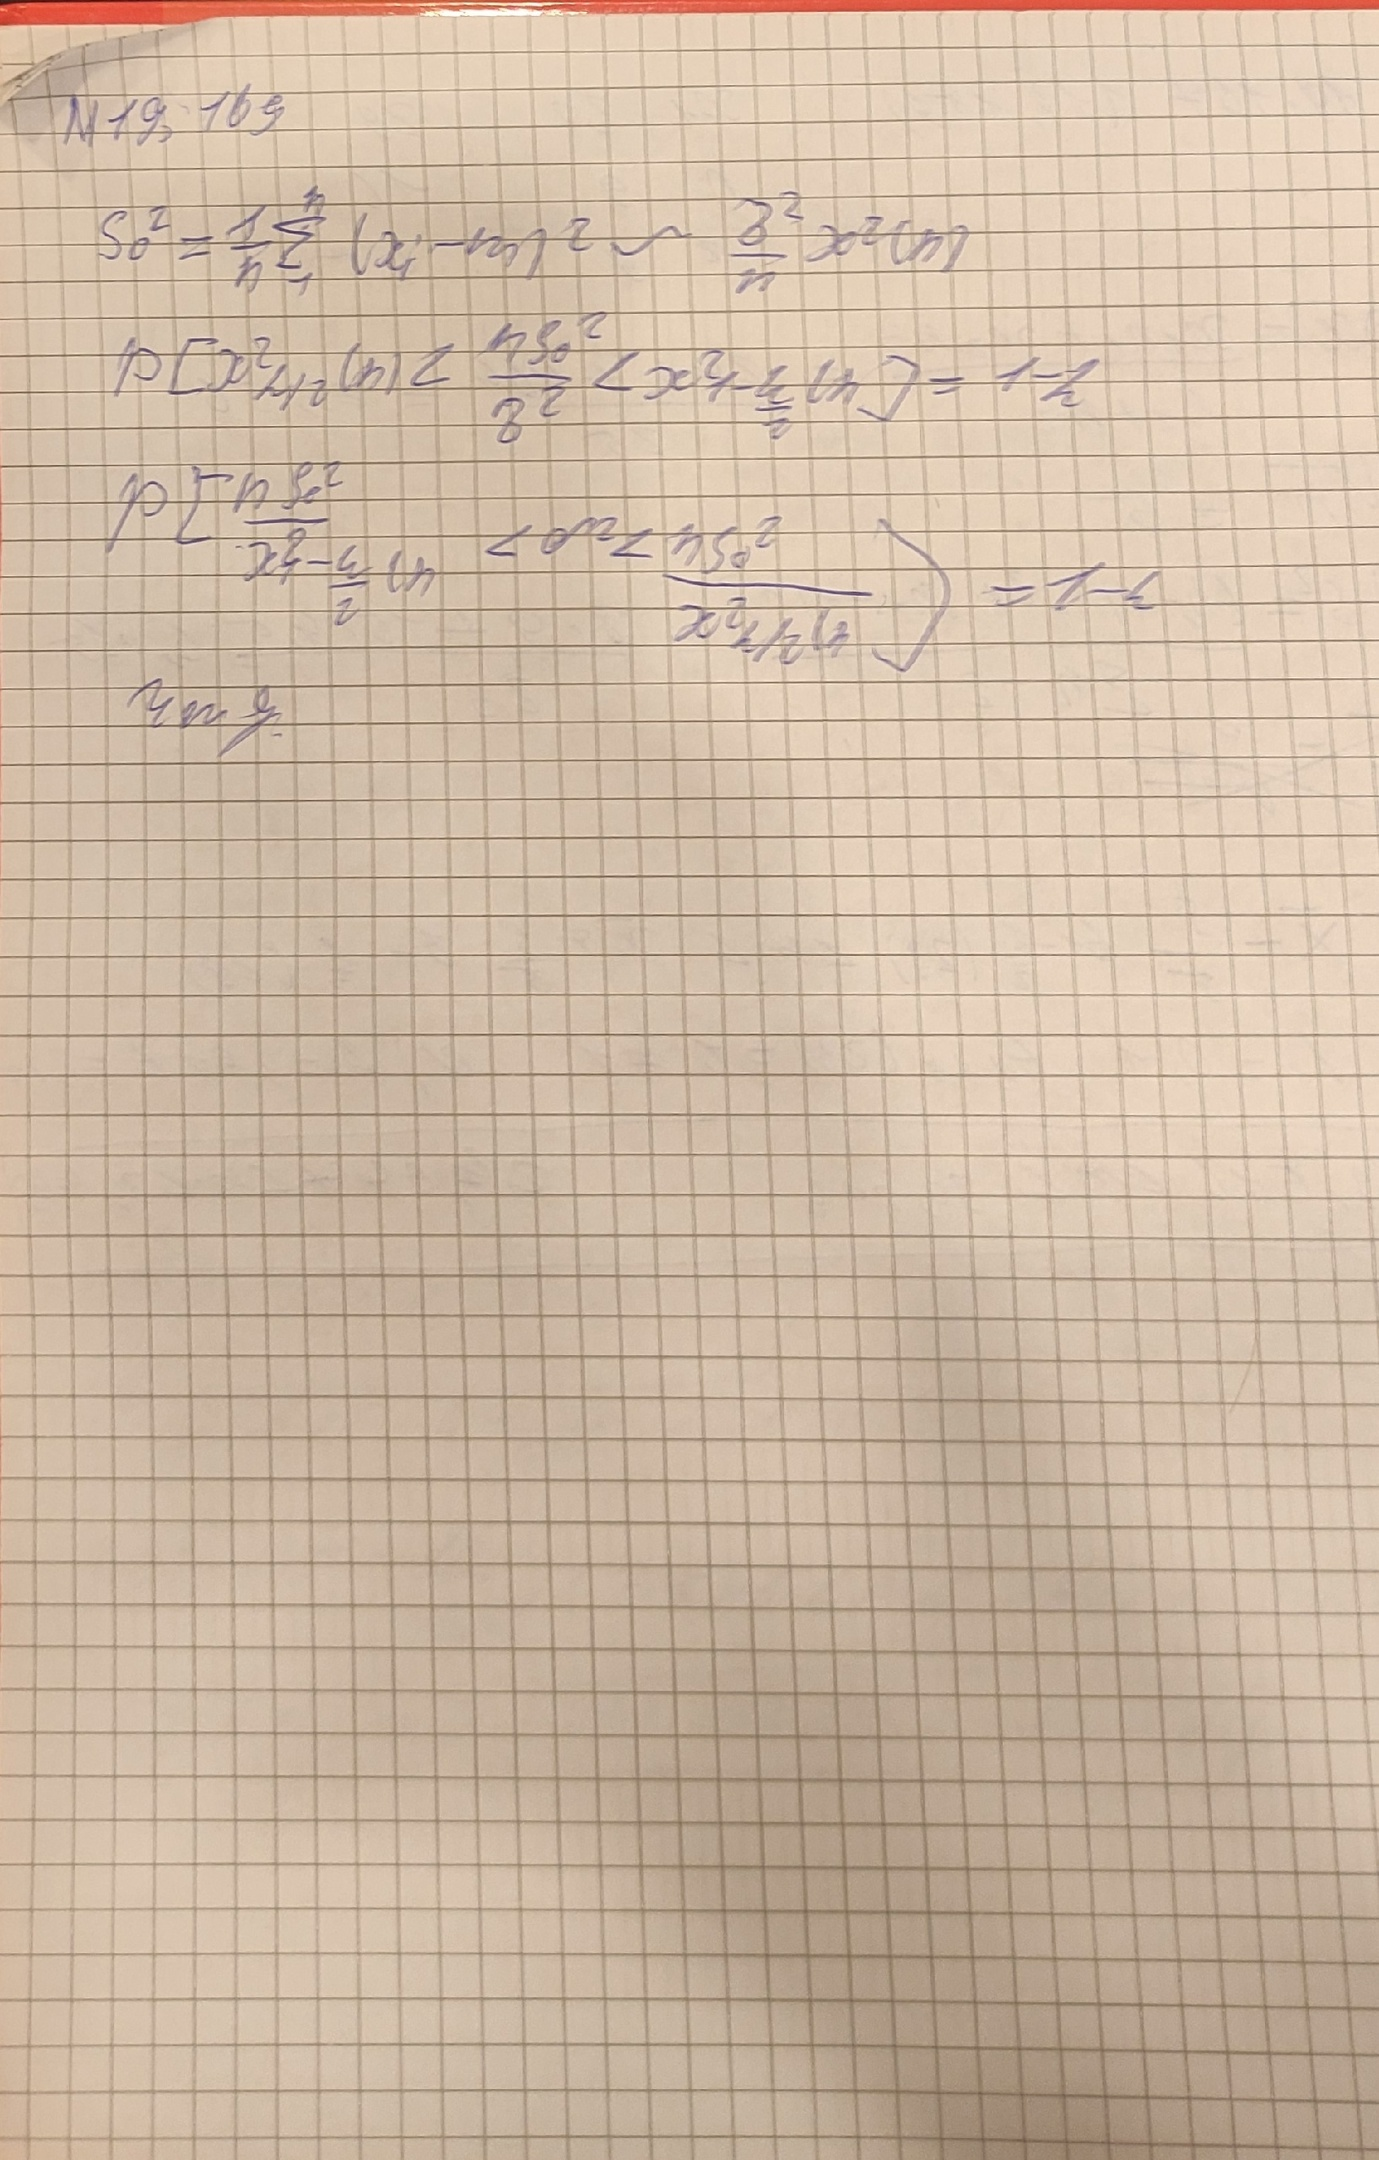 N 19.169
S₀² = 1/n Σ₁ⁿ (xᵢ - m)² ~ σ²/n χ²(n)
P[χ²_{α/2}(n) < nS₀²/σ² < χ²_{1-α/2}(n)] = 1-α
P[nS₀²/χ²_{1-α/2}(n) < σ² < nS₀²/χ²_{α/2}(n)] = 1-α